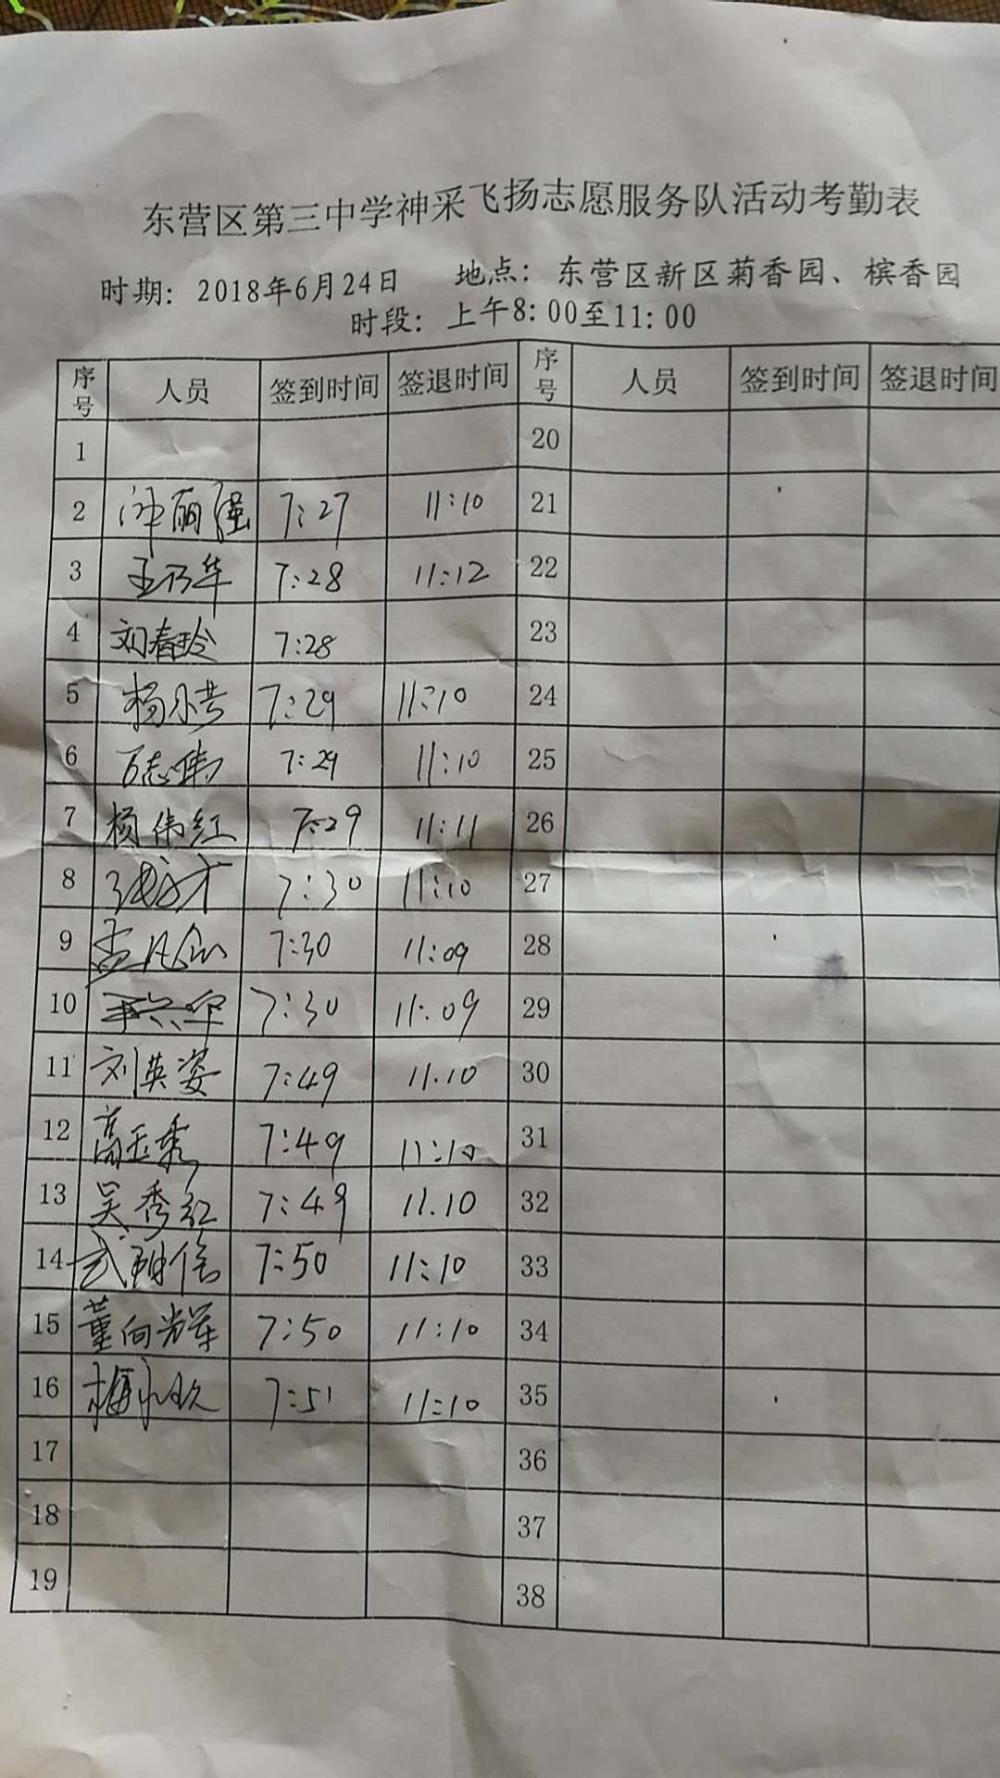 东营区第三中学神采飞扬志愿服务队活动考勤表
时期：2018年6月24日 地点：东营区新区菊香园、槟香园
时段：上午8：00至11：00
序号 人员 签到时间 签退时间 序号 人员 签到时间 签退时间
1 20
2 7:27 11:10 21
3 王乃华 7:28 11:12 22
4 刘春玲 7:28 23
5 7:29 11:10 24
6 万志伟 7:29 11:10 25
7 杨伟红 7:29 11:11 26
8 7:30 11:10 27
9 7:30 11:09 28
10 7:30 11:09 29
11 刘英姿 7:49 11.10 30
12 高玉秀 7:49 11:10 31
13 吴秀红 7:49 11.10 32
14 7:50 11:10 33
15 董向辉 7:50 11:10 34
16 7:51 11:10 35
17 36
18 37
19 38